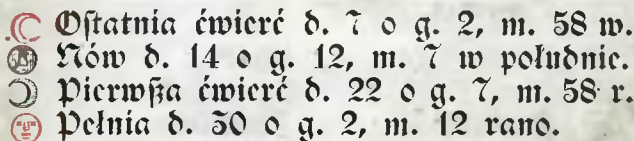 Oſtatnia ćwierć d. 7 o g. 2, m. 58 w.
Nów d. 14 o g. 12, m. 7 w południe.
Pierwſza ćwierć d. 22 o g. 7, m. 58 r.
Pełnia d. 30 o g. 2, m. 12 rano.